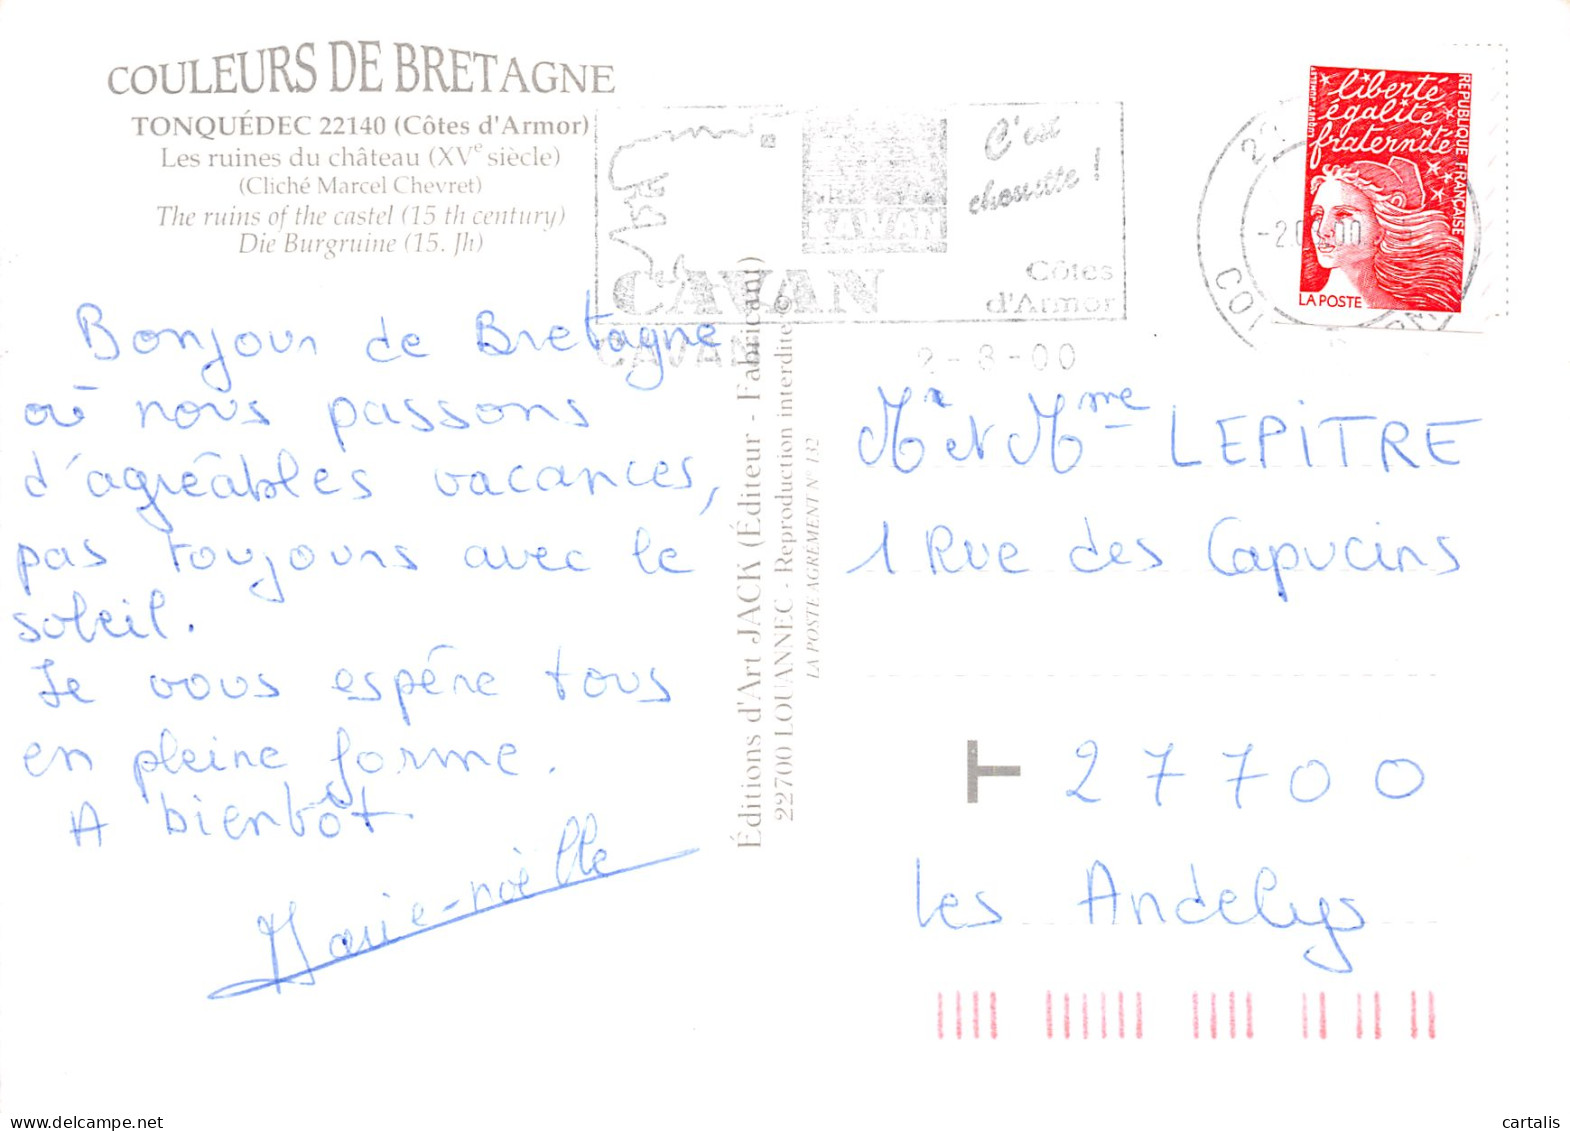 COULEURS DE BRETAGNE
TONQUÉDEC 22140 (Côtes d'Armor)
Les ruines du château (XVe siècle)
(Cliché Marcel Chevret)
The ruins of the castel (15 th century)
Die Burgruine (15. Jh)
CAVAN
C'est
chouette !
CAVAN
Côtes
d'Armor
CAVAN
2-8-00
liberté
égalité
fraternité
REPUBLIQUE FRANÇAISE
LA POSTE
Bonjour de Bretagne
où nous passons
d'agréables vacances,
pas toujours avec le
soleil.
Je vous espére tous
en pleine forme.
A bientôt
Marie-noëlle
Éditions d'Art JACK (Éditeur - Fabricant)
22700 LOUANNEC - Reproduction interdite ©
LA POSTE AGREMENT N° 132
Mr et Mme LEPITRE
1 Rue des Capucins
27700
Les Andelys
cartalis